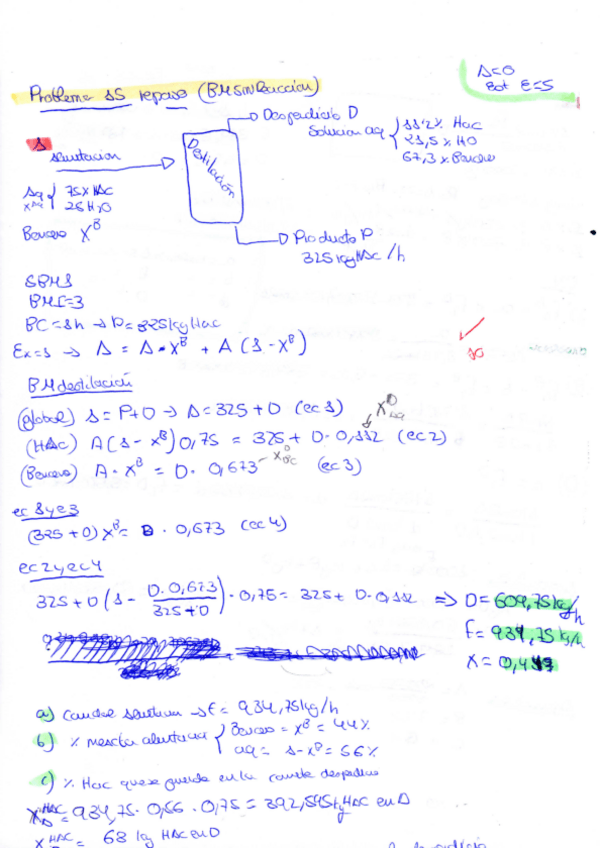 A=O
Bat E=S
Problema 15 repaso (BM SIN Reacción)
Desperdicio D
Solucion aq { 11'2% HAc
21,5% H2O
67,3% Benceno
A
alimentación
Destilación
Aq { 75% HAc
25 H2O
Benceno X^B
Producto P
325 kg HAc /h
BC=1h → P=325kg HAc
Ex=1 → A = A·X^B + A (1-X^B)
10
BM destilación
(global) A = P+D → A=325+D (ec 1)
(HAc) A(1-X^B)0,75 = 325+ D·0,112 (ec 2)
(Benceno) A·X^B = D·0,673 (ec 3)
ec 1 y ec 3
(325+D)X^B = D·0,673 (ec 4)
ec 2 y ec 4
325+D(1 - D·0,673/325+D)·0,75= 325+ D·0,112 ⇒ D= 609,75kg/h
F= 934,75kg/h
X=
a) Caudal alimentación → F= 934,75kg/h
b) % mezcla alimentada { Benceno = X^B = 44%
aq = 1-X^B = 56%
c) % HAc que se pierde en la corriente desperdicio
X_A^HAC = 934,75·0,56·0,75 = 392,595kg HAc en A
X^HAC = 68 kg HAC en D